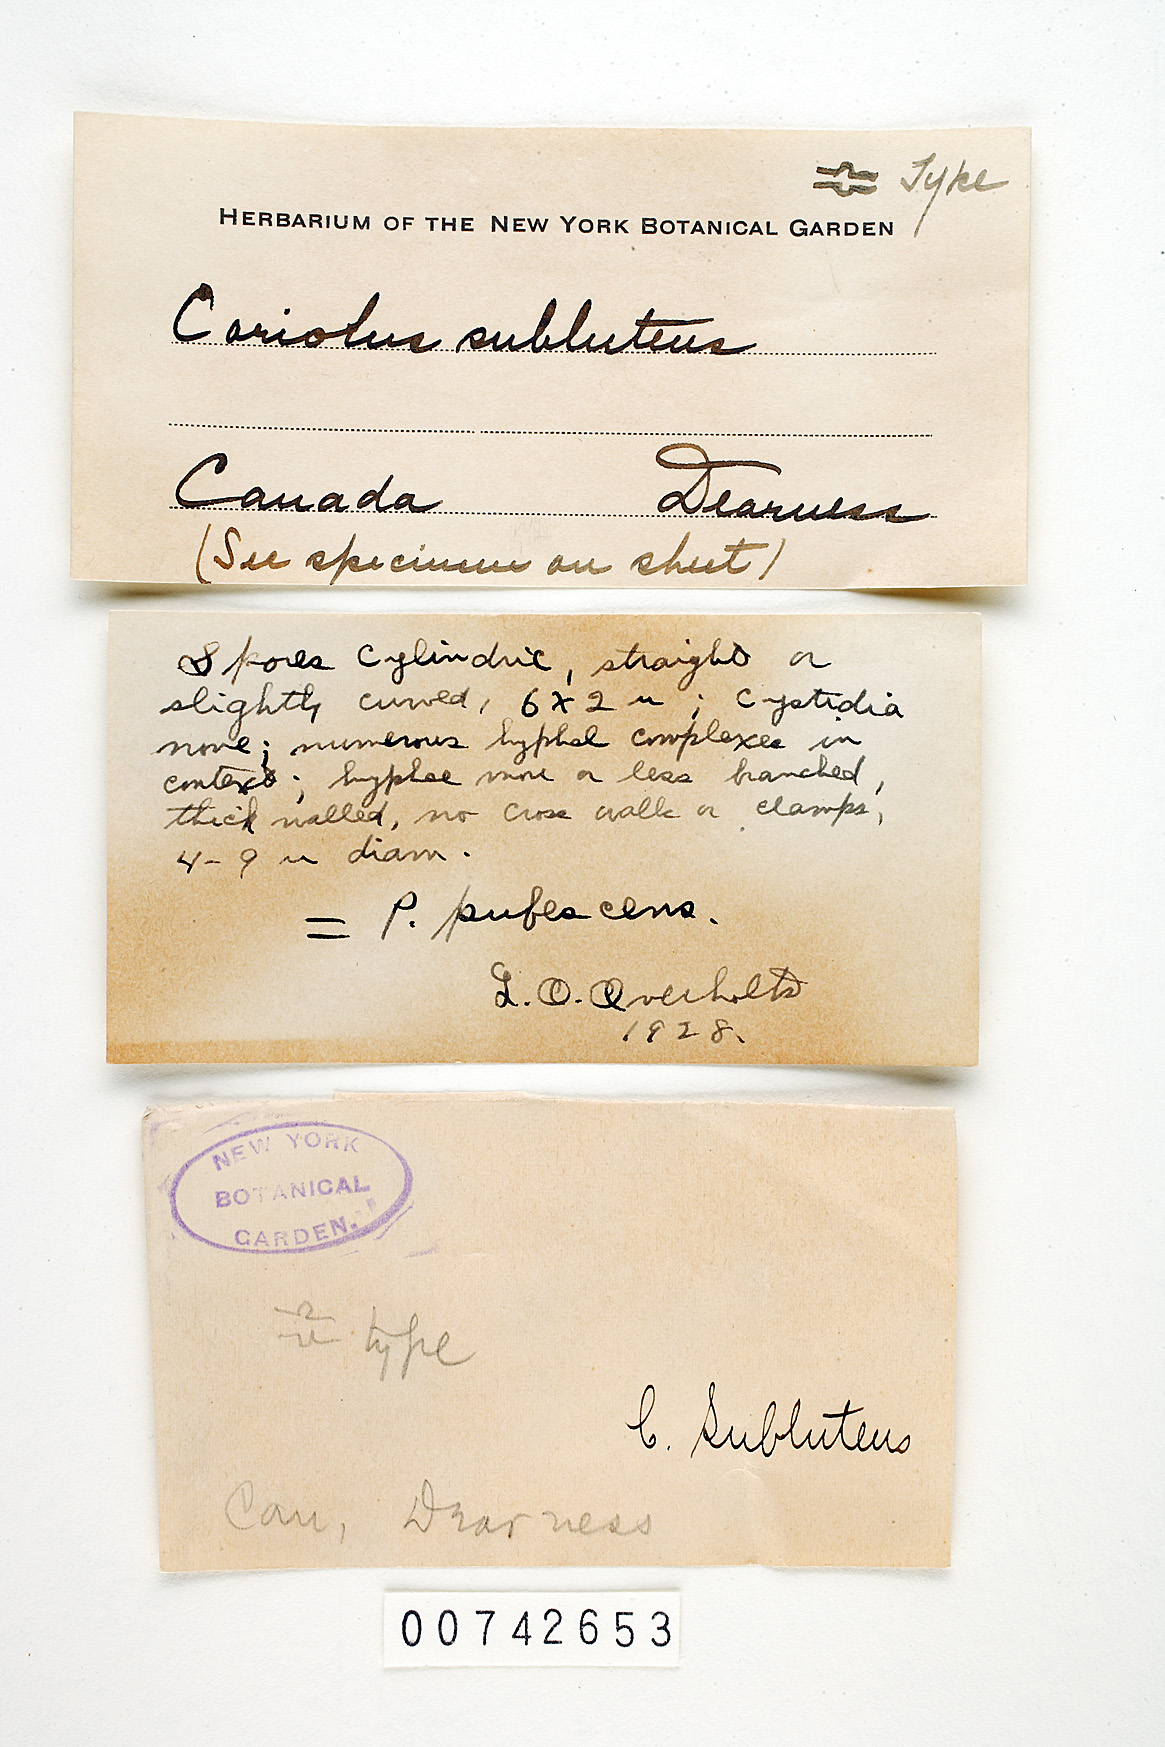 Type
HERBARIUM OF THE NEW YORK BOTANICAL GARDEN
Coriolus subluteus
Canada Dearness
(See specimen on sheet)
Spores cylindric, straight or
slightly curved, 6 x 2 u ; cystidia
none; numerous hyphal complexes in
context; hyphae more or less branched,
thick walled, no cross walls or clamps,
4-9 u diam.
= P. pubescens.
L. O. Overholts
1928.
NEW YORK
BOTANICAL
GARDEN.
type
C. Subluteus
Can, Dearness
00742653